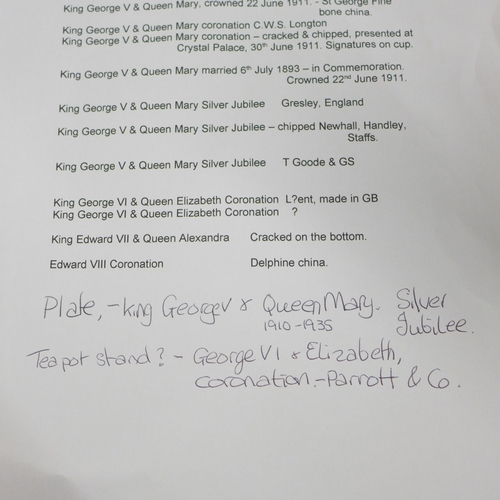 King George V & Queen Mary, crowned 22 June 1911. - St George Fine
bone china.
King George V & Queen Mary coronation C.W.S. Longton
King George V & Queen Mary coronation – cracked & chipped, presented at
Crystal Palace, 30th June 1911. Signatures on cup.
King George V & Queen Mary married 6th July 1893 – in Commemoration.
Crowned 22nd June 1911.
King George V & Queen Mary Silver Jubilee Gresley, England
King George V & Queen Mary Silver Jubilee – chipped Newhall, Handley,
Staffs.
King George V & Queen Mary Silver Jubilee T Goode & GS
King George VI & Queen Elizabeth Coronation L?ent, made in GB
King George VI & Queen Elizabeth Coronation ?
King Edward VII & Queen Alexandra Cracked on the bottom.
Edward VIII Coronation Delphine china.
Plate, - King George V & Queen Mary. Silver
1910-1935 Jubilee.
Teapot stand? - George VI & Elizabeth,
coronation. - Parrott & Co.